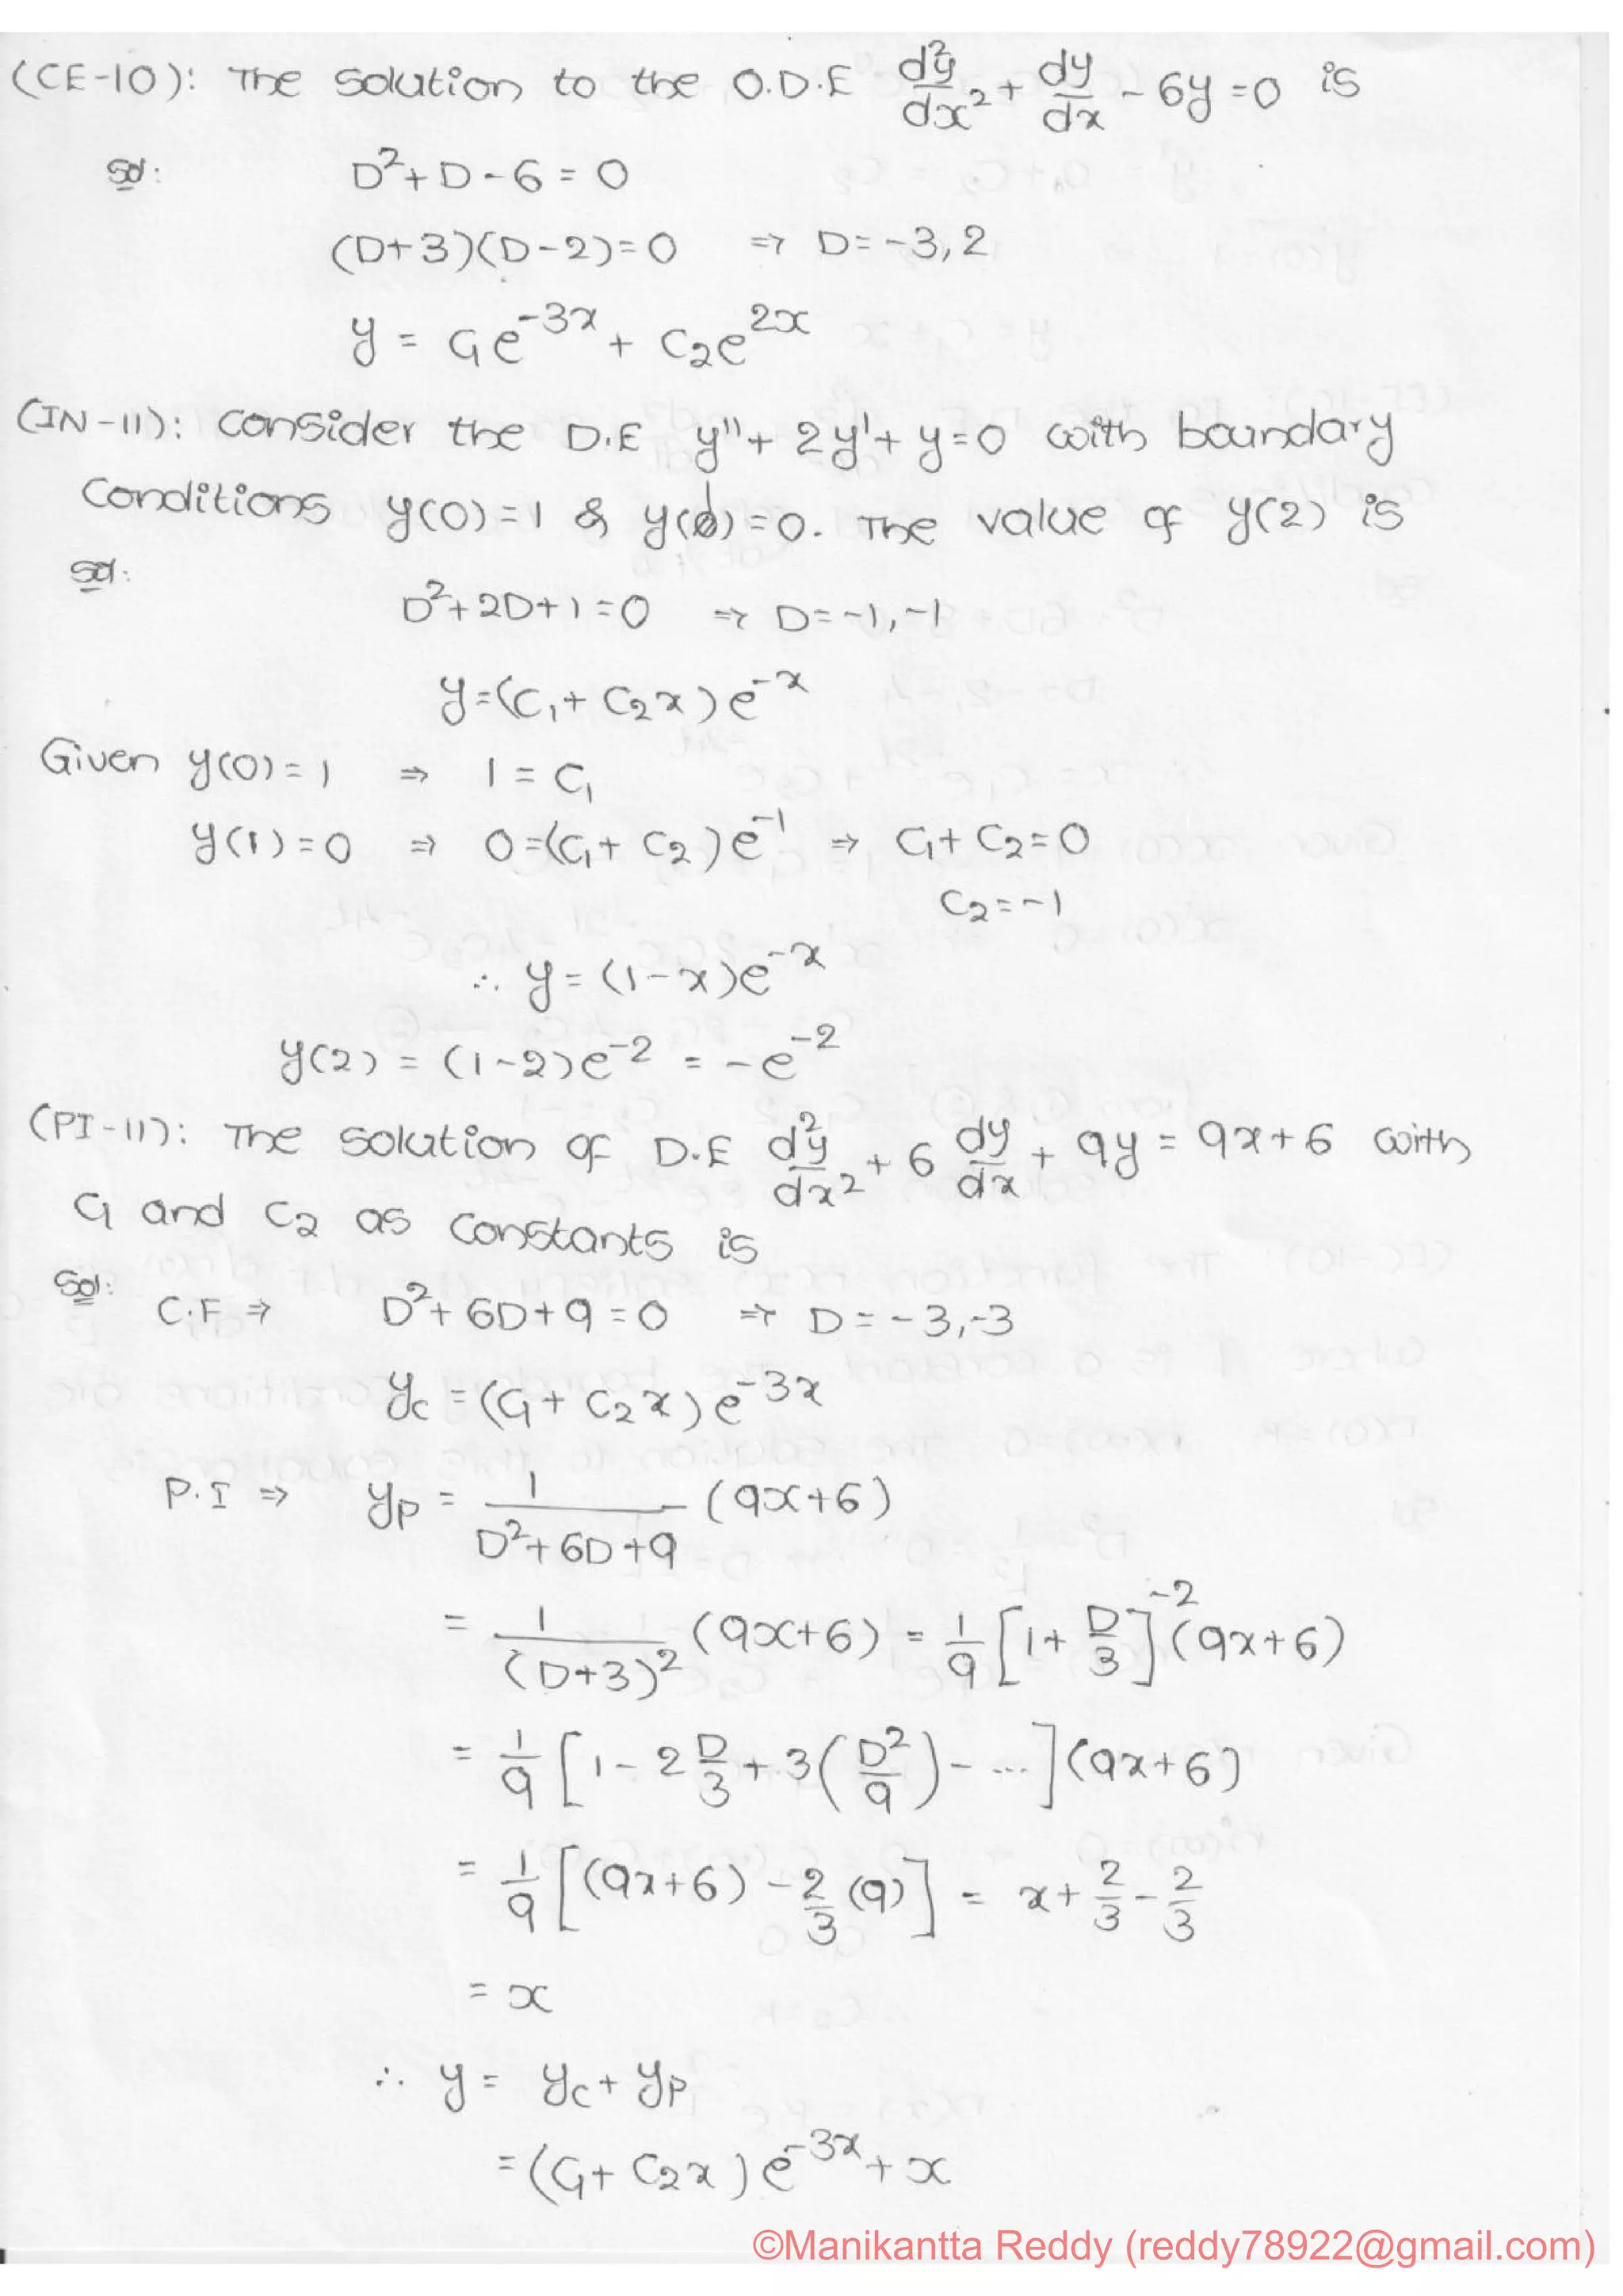 (CE-10): The solution to the O.D.E d²y/dx² + dy/dx - 6y = 0 is
Sol: D² + D - 6 = 0
(D+3)(D-2) = 0 ⇒ D = -3, 2
y = C₁e^{-3x} + C₂e^{2x}
(IN-11): Consider the D.E y'' + 2y' + y = 0 with boundary
Conditions y(0) = 1 & y(1) = 0. The value of y(2) is
Sol:
D² + 2D + 1 = 0 ⇒ D = -1, -1
y = (C₁ + C₂x)e^{-x}
Given y(0) = 1 ⇒ 1 = C₁
y(1) = 0 ⇒ 0 = (C₁ + C₂)e^{-1} ⇒ C₁ + C₂ = 0
C₂ = -1
∴ y = (1-x)e^{-x}
y(2) = (1-2)e^{-2} = -e^{-2}
(PI-11): The solution of D.E d²y/dx² + 6 dy/dx + 9y = 9x + 6 with
C₁ and C₂ as constants is
Sol:
C.F ⇒ D² + 6D + 9 = 0 ⇒ D = -3, -3
y_c = (C₁ + C₂x)e^{-3x}
P.I ⇒ y_p = 1/(D² + 6D + 9) (9x+6)
= 1/(D+3)² (9x+6) = 1/9 [1 + D/3]^{-2} (9x+6)
= 1/9 [1 - 2 D/3 + 3(D²/9) - ...] (9x+6)
= 1/9 [(9x+6) - 2/3 (9)] = x + 2/3 - 2/3
= x
∴ y = y_c + y_p
= (C₁ + C₂x)e^{-3x} + x
©Manikantta Reddy (reddy78922@gmail.com)